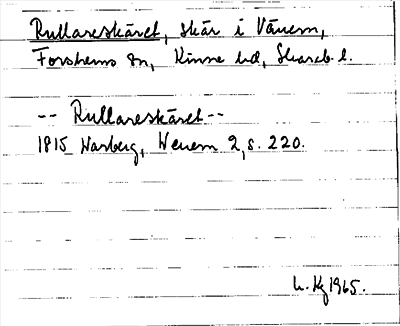 Rullareskäret, skär i Vänern,
Forshems sn, Kinne hd, Skarab. l.
-- Rullareskäret --
1815 Warberg, Wenern 2, s. 220.
L. Kg 1965.